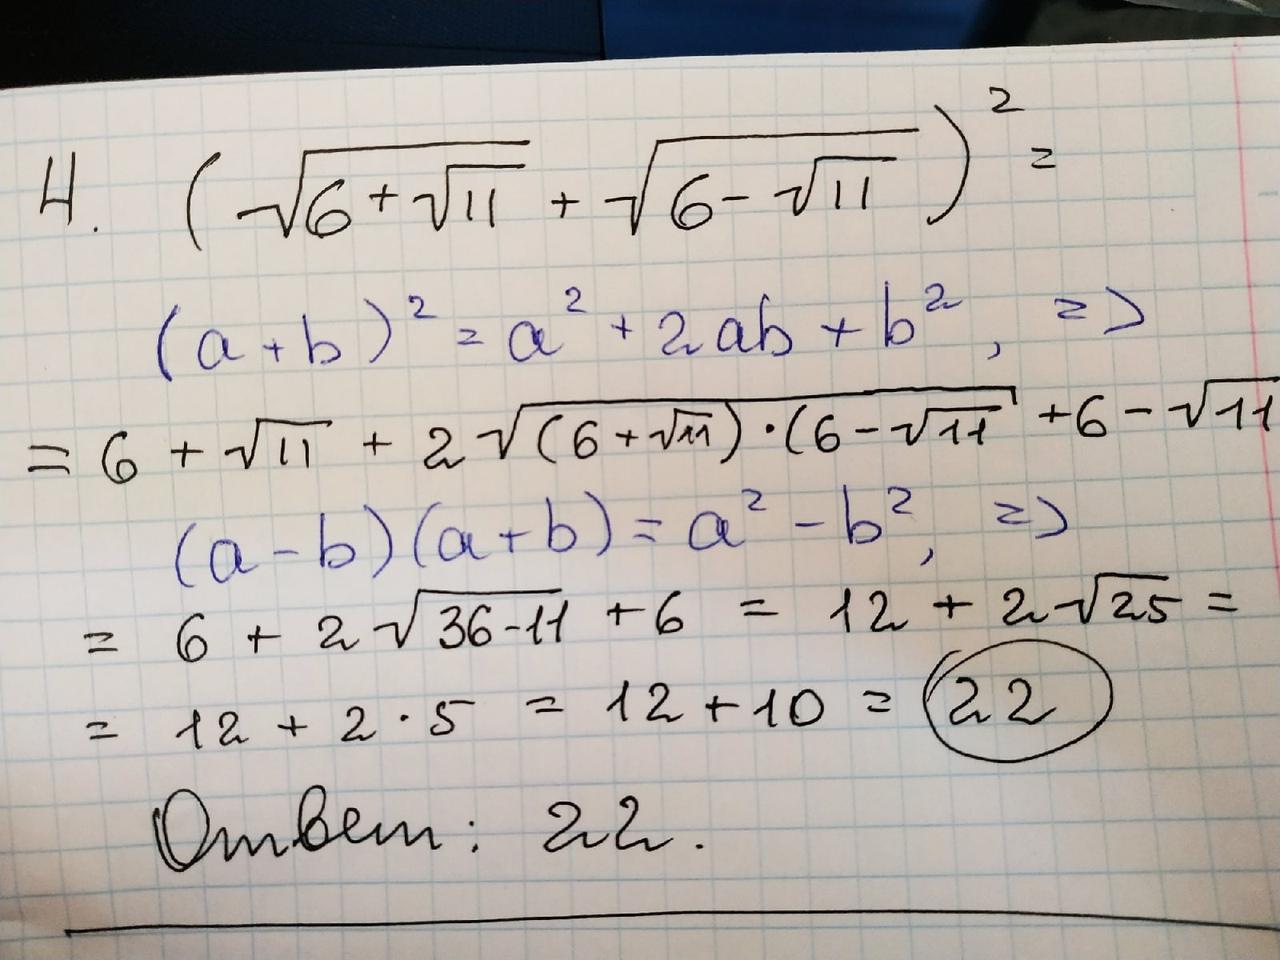 4. (√(6+√11) + √(6-√11))² =
(a+b)² = a² + 2ab + b², =>
= 6 + √11 + 2√((6+√11)·(6-√11) + 6 - √11
(a-b)(a+b) = a² - b², =>
= 6 + 2√(36-11) + 6 = 12 + 2√25 =
= 12 + 2·5 = 12 + 10 = 22
Ответ: 22.